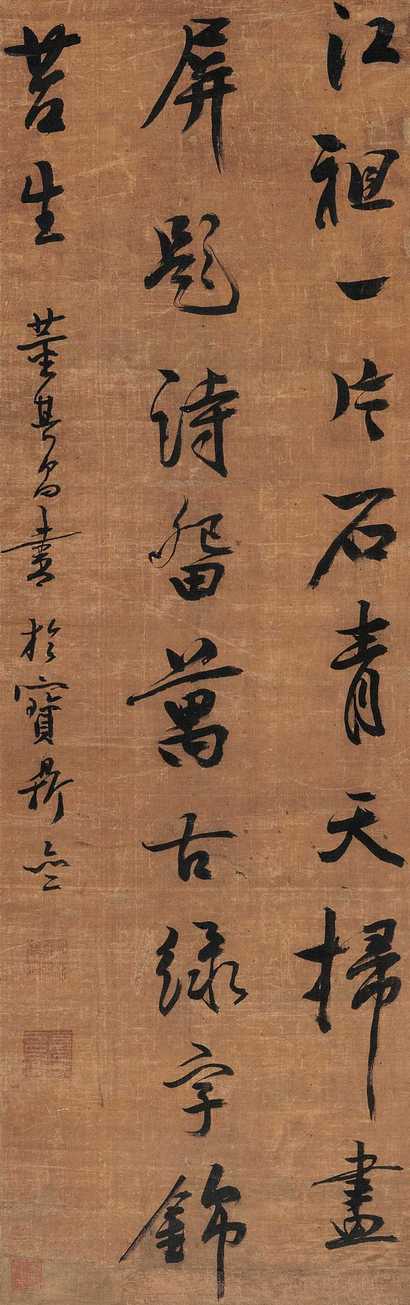 江祖一片石青天掃畫
屏題詩留萬古綠字錦
苔生
董其昌書於寶鼎齋